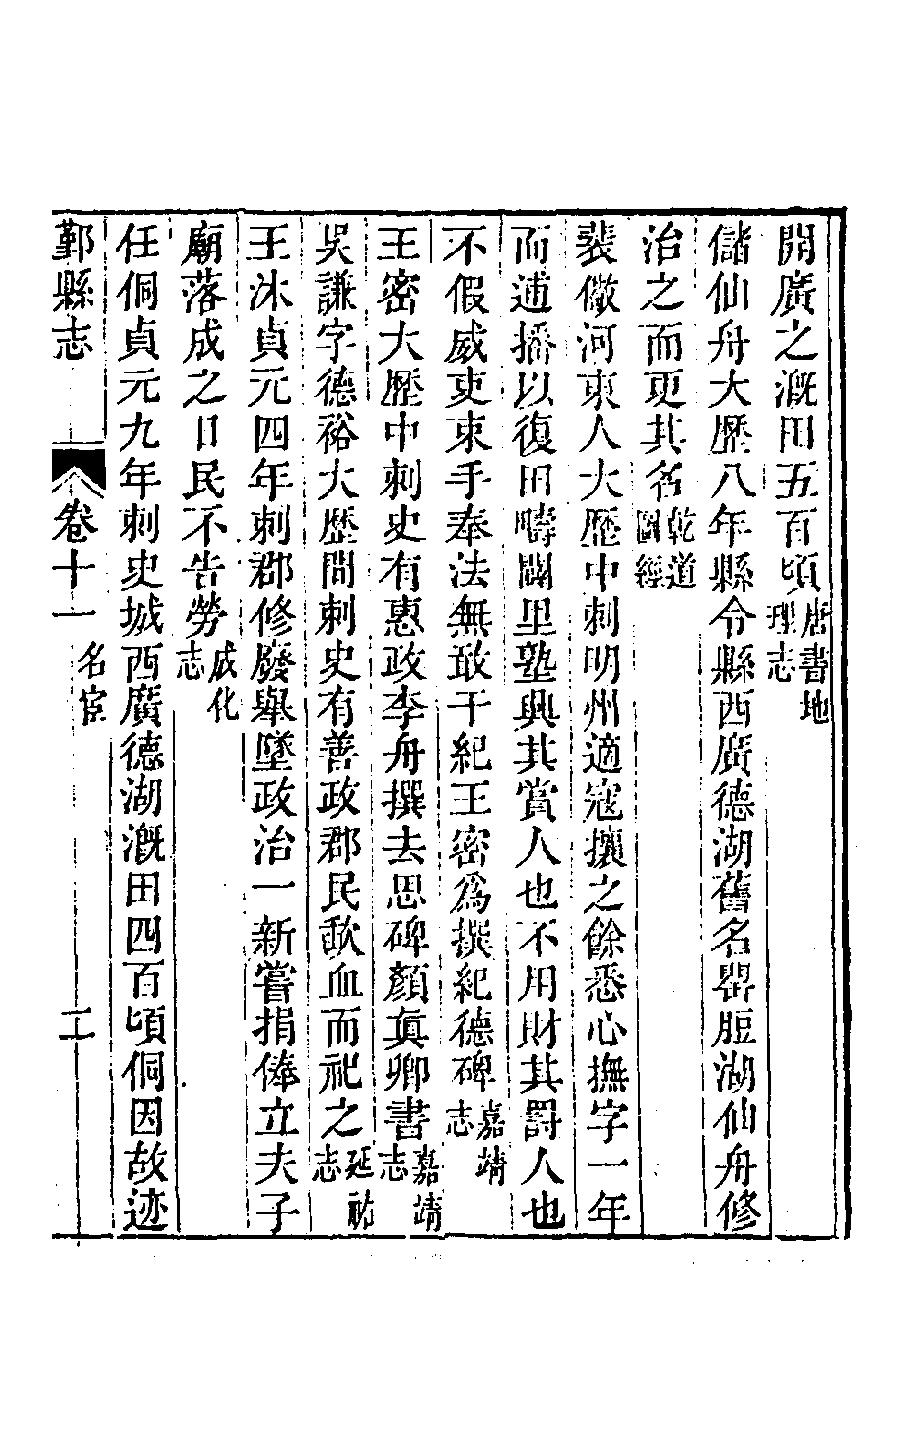 開廣之漑田五百頃唐書地理志
儲仙舟大歷八年縣令縣西廣德湖舊名罌脰湖仙舟修
治之而更其名乾道圖經
裴儆河東人大歷中刺明州適寇攘之餘悉心撫字一年
而逋播以復田疇闢里塾興其賞人也不用財其罸人也
不假威吏束手奉法無敢干紀王密爲撰紀德碑嘉靖志
王密大歷中刺史有惠政李舟撰去思碑顏眞卿書嘉靖志
吳謙字德裕大歷間刺史有善政郡民歃血而祀之延祐志
王沐貞元四年刺郡修廢舉墜政治一新嘗捐俸立夫子
廟落成之日民不告勞成化志
任侗貞元九年刺史城西廣德湖漑田四百頃侗因故迹
鄞縣志 卷十一 名宦 二